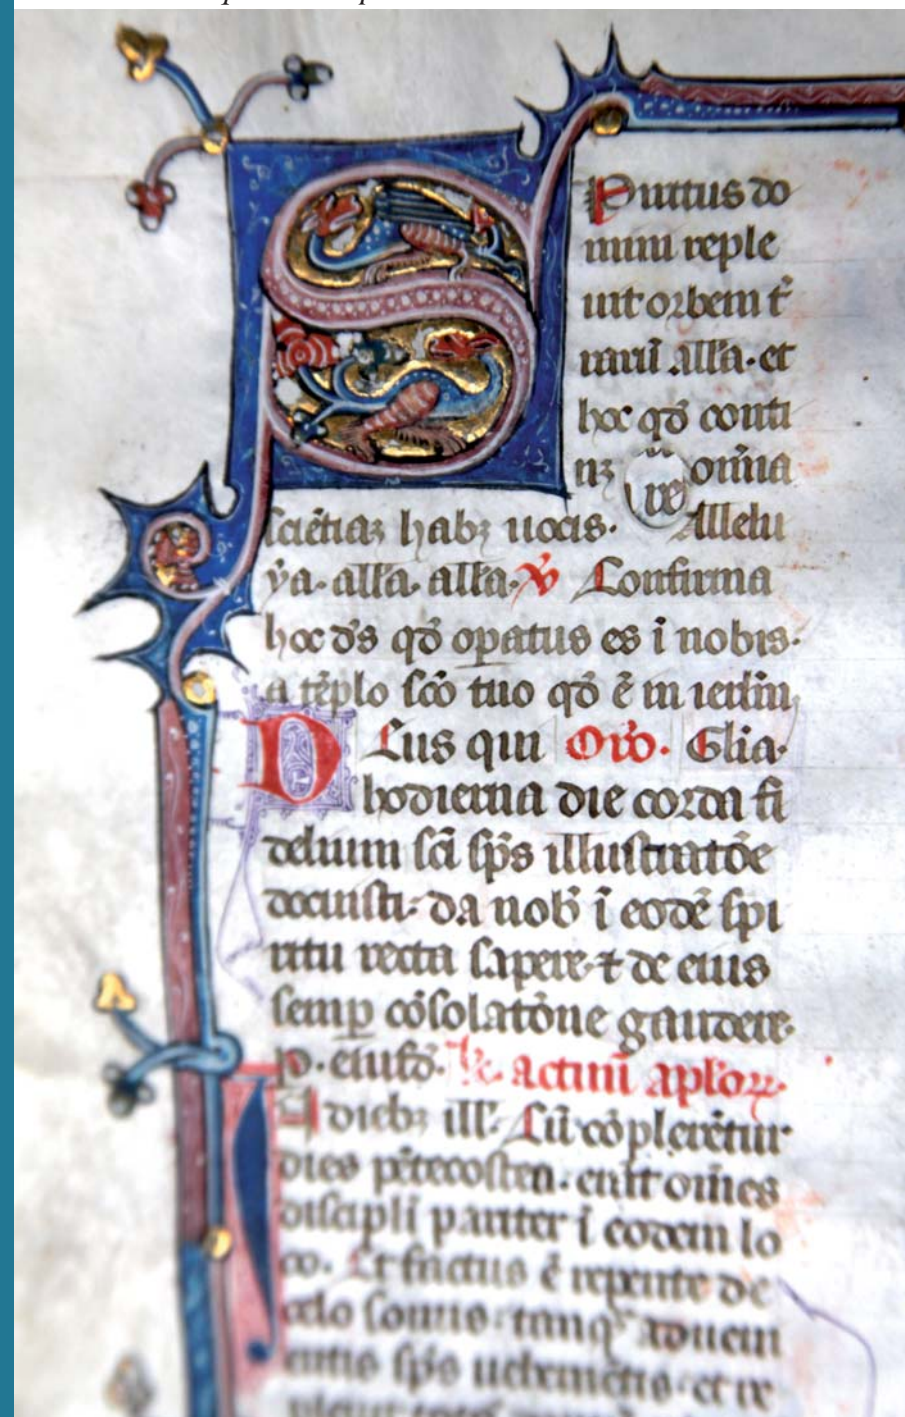 Spiritus do
mini reple
uit orbem t̄
rarū all̄a. et
hoc qd̄ conti
nꝫ om̄ia
re
sciētiaꝫ habꝫ uocis. Allelu
ya. all̄a. all̄a. V̄ Confirma
hoc d̄s qd̄ opatus es ī nobis.
a tēplo scō tuo qd̄ ē in ierl̄m
Deus qui Orō. Glia.
hodierna die corda fi
delium sc̄i sp̄s illustratōe
docuisti. da nob̄ ī eodē spi
ritu recta sapere ⁊ de eius
semp̲ cōsolatōne gaudere.
p. eiusd̄. actuū apl̄oꝝ.
In diebꝫ ill̄. Cū cōplerētur
dies pētecostes. erāt om̄es
discipli pariter ī eodem lo
co. Et factus ē repente de
celo sonus. tamq̄ aduen
entis sp̄s uehemētis. et re